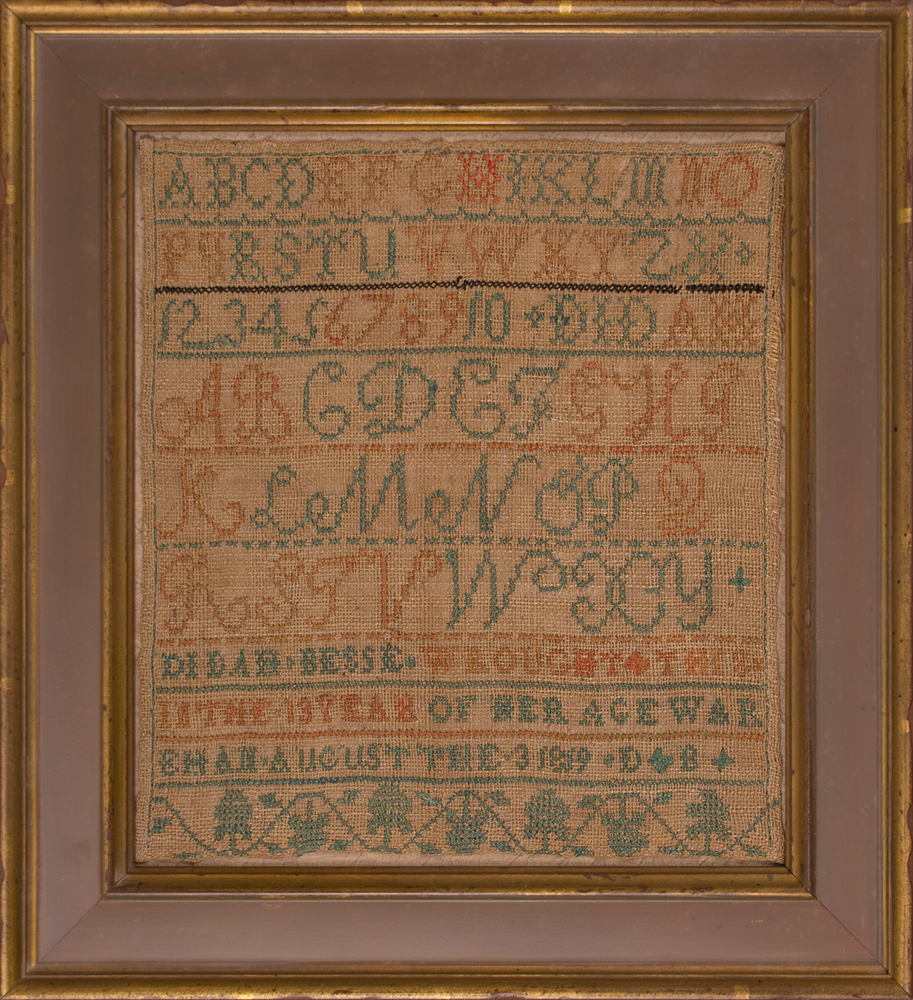 ABCDEFGHIKLMNO
PQRSTUVWXYZ&
12345678910 DID AH
ABCDEFGHI
KLeMeNOPQ
RSTVWXY
DIDAH BESSE WROUGHT THIS
IN THE 13 YEAR OF HER AGE WAR
EHAM AUGUST THE 3 1819 D B